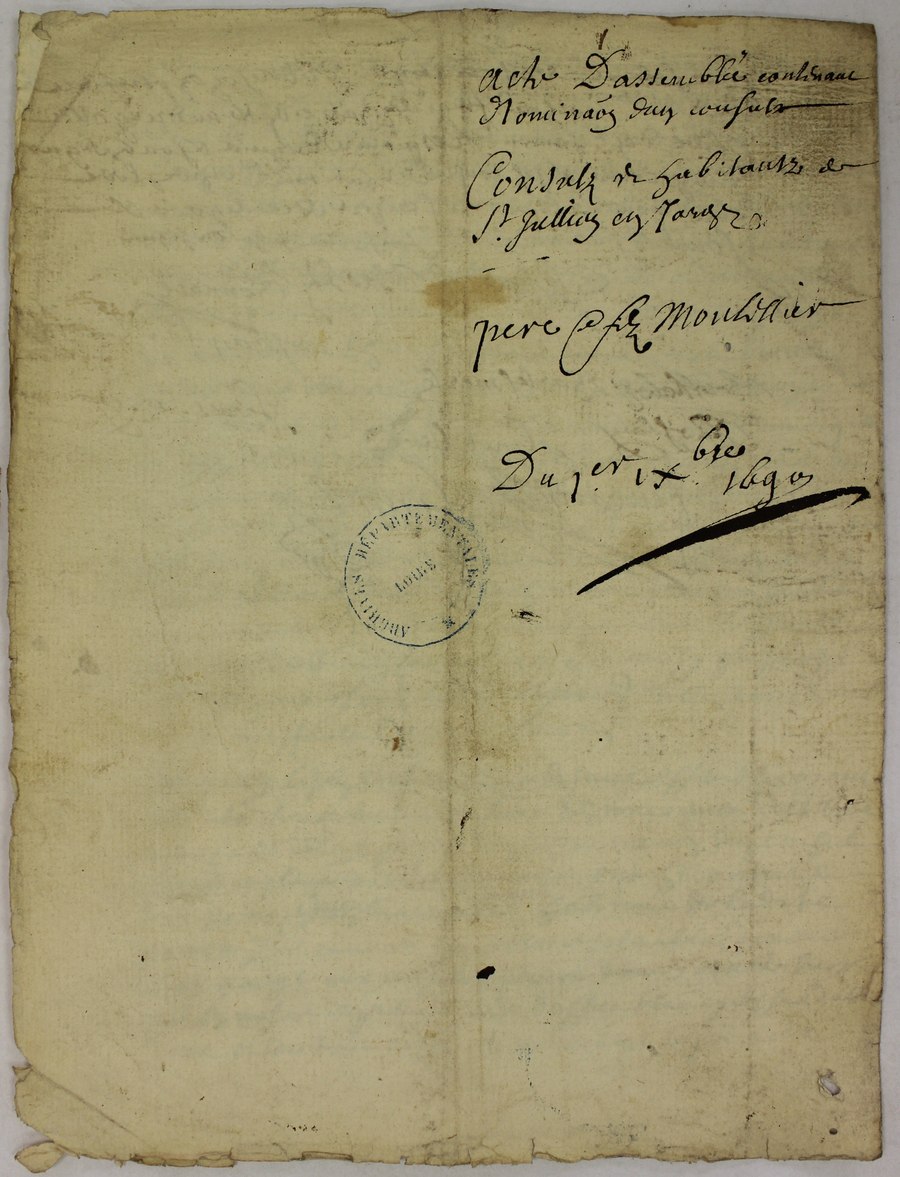 Acte Dassemblée contenant
Nominaõn dun consult
Consulz et habitantz de
St Jullien en Jarezs
pere et filz Montellier
Du 1er IXbre 1690
ARCHIVES DÉPARTEMENTALES
LOIRE